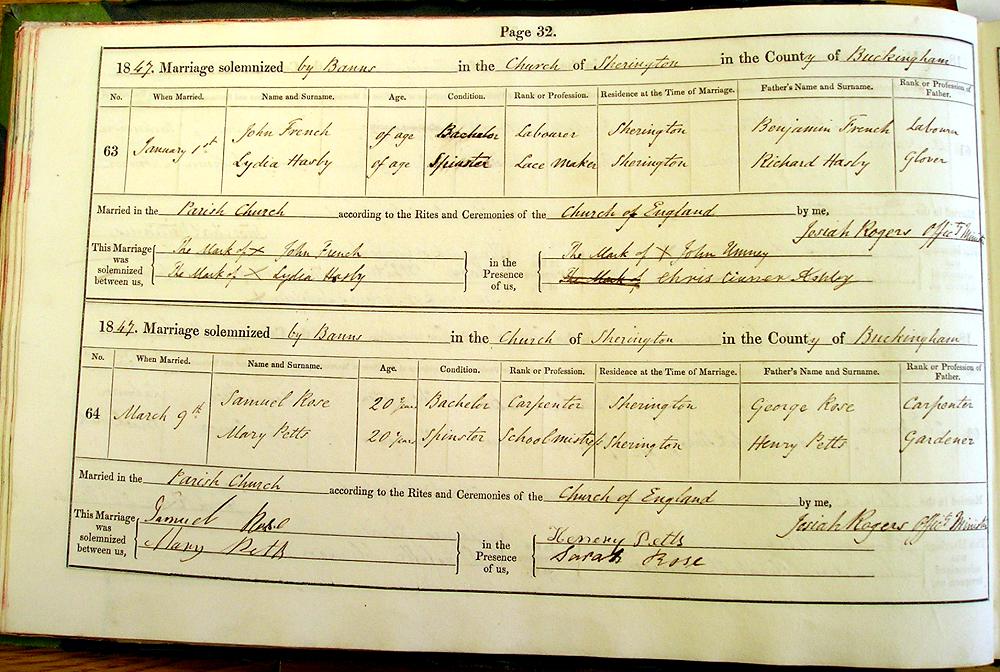 Page 32.
1847. Marriage solemnized by Banns in the Church of Sherington in the County of Buckingham
No. When Married. Name and Surname. Age. Condition. Rank or Profession. Residence at the Time of Marriage. Father's Name and Surname. Rank or Profession of Father.
63 January 1st John French of age Bachelor Labourer Sherington Benjamin French Labourer
Lydia Hasby of age Spinster Lace Maker Sherington Richard Hasby Glover
Married in the Parish Church according to the Rites and Ceremonies of the Church of England by me,
Josiah Rogers Offict Minist
This Marriage was solemnized between us, The Mark of X John French in the Presence of us, The Mark of X John Umney
The Mark of X Lydia Hasby The Mark of Chris Ashby
1847. Marriage solemnized by Banns in the Church of Sherington in the County of Buckingham
No. When Married. Name and Surname. Age. Condition. Rank or Profession. Residence at the Time of Marriage. Father's Name and Surname. Rank or Profession of Father.
64 March 9th Samuel Rose 20 years Bachelor Carpenter Sherington George Rose Carpenter
Mary Petts 20 years Spinster Schoolmistress Sherington Henry Petts Gardener
Married in the Parish Church according to the Rites and Ceremonies of the Church of England by me,
Josiah Rogers Offict Minist
This Marriage was solemnized between us, Samuel Rose in the Presence of us, Henrery Petts
Mary Petts Sarah Rose